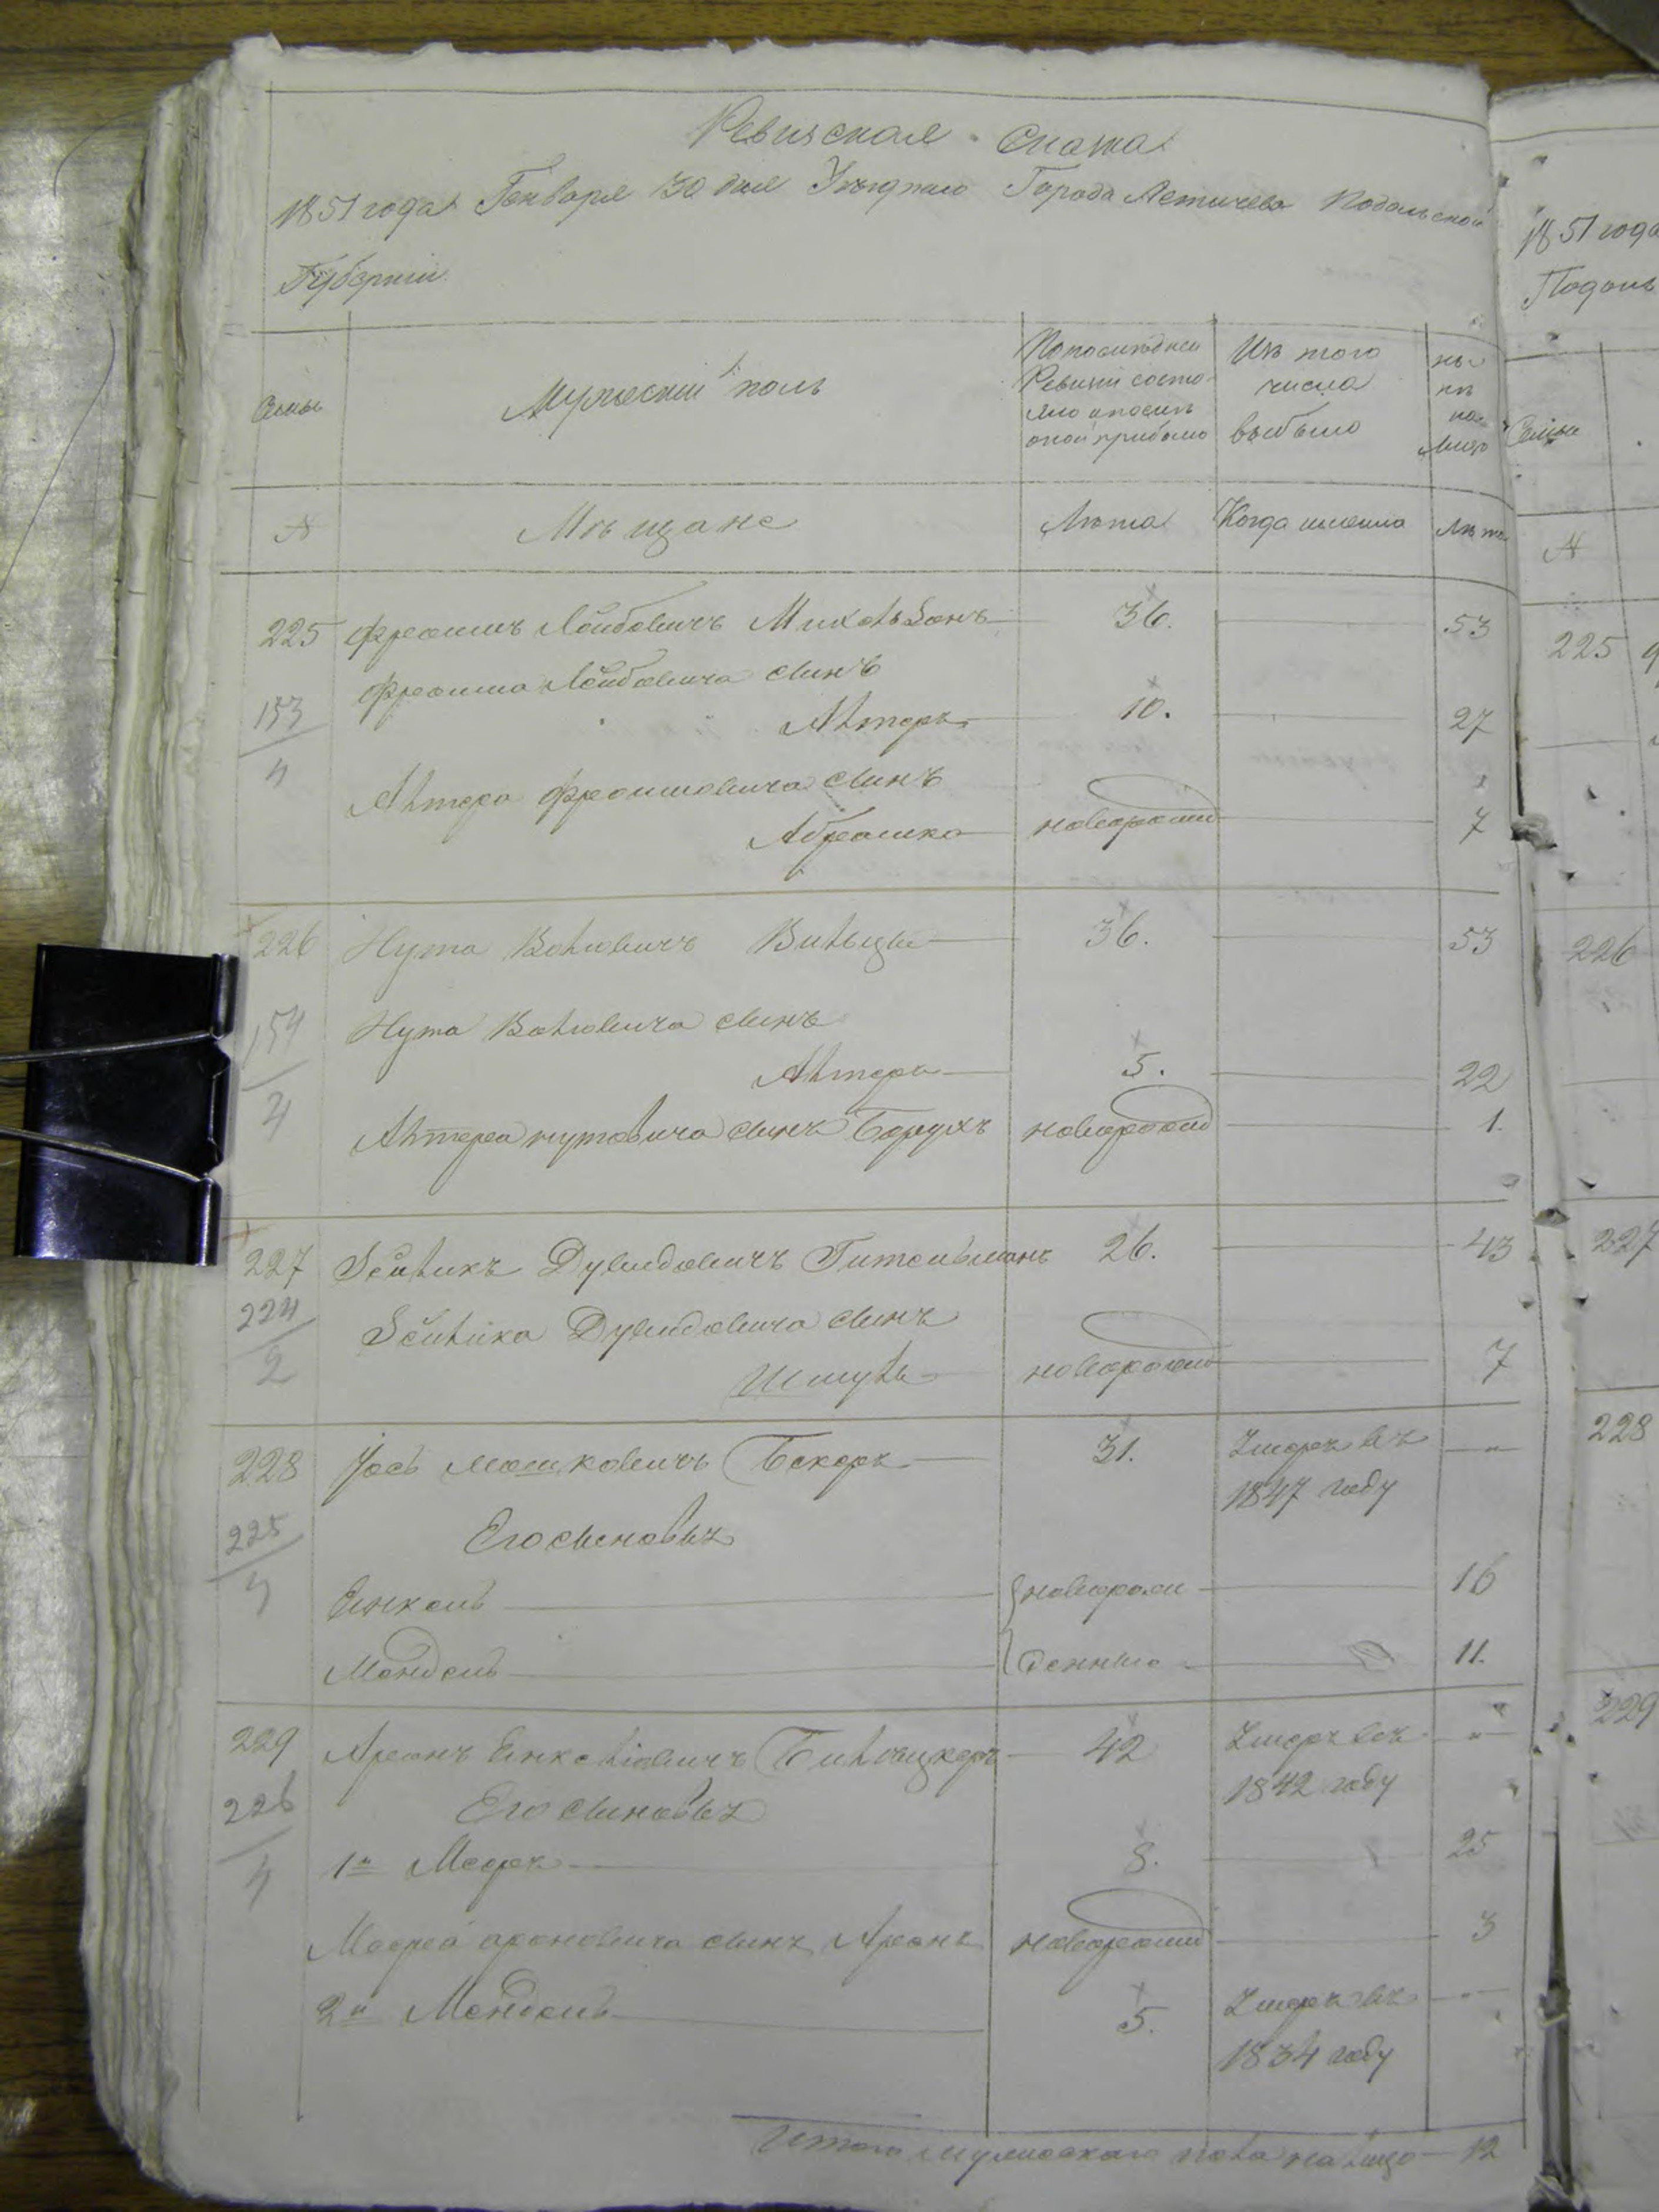 Ревизская Сказка
1851 года Генваря 30 дня Уезднаго Города Летичева Подольской
Губернии
Семьи
Мужеский полъ
По последней Ревизии состояло и после оной прибыло
Изъ того числа выбыло
ныне на лицо
№
Мѣщане
Лѣта
Когда именно
Лѣта
225 Фроимъ Лейбовичъ Михельзонъ 36. 53
Фроима Лейбовича сынъ
153 Алтеръ 10. 27
4
Алтера Фроимовича сынъ
Абрамко новорожд 7
226 Нута Волковичъ 36. 53
154 Нута Волковича сынъ
Алтеръ 5. 22
4
Алтера нутовича сынъ Борухъ новорожд 1.
227 Зейликъ Дувидовичъ Гительманъ 26. 43
224 Зейлика Дувидовича сынъ
2
Шмуль новорожд 7
228 Иось Мошковичъ Бекеръ 31. Умеръ въ "
1847 году
225 Его сыновья
4
Янкель новорож 16
Мендель денные 11.
229 Аронъ Янкелiовичъ 42 Умеръ въ "
1842 году
226 Его сыновья
4
1й Мееръ 8. 25
Меера ароновича сынъ Аронъ новорожд 3
2й Мендель 5. Умеръ въ "
1834 году
Итого мужескаго пола на лицо 12
1851 года
Подоль
Семьи
№
225
226
227
228
229